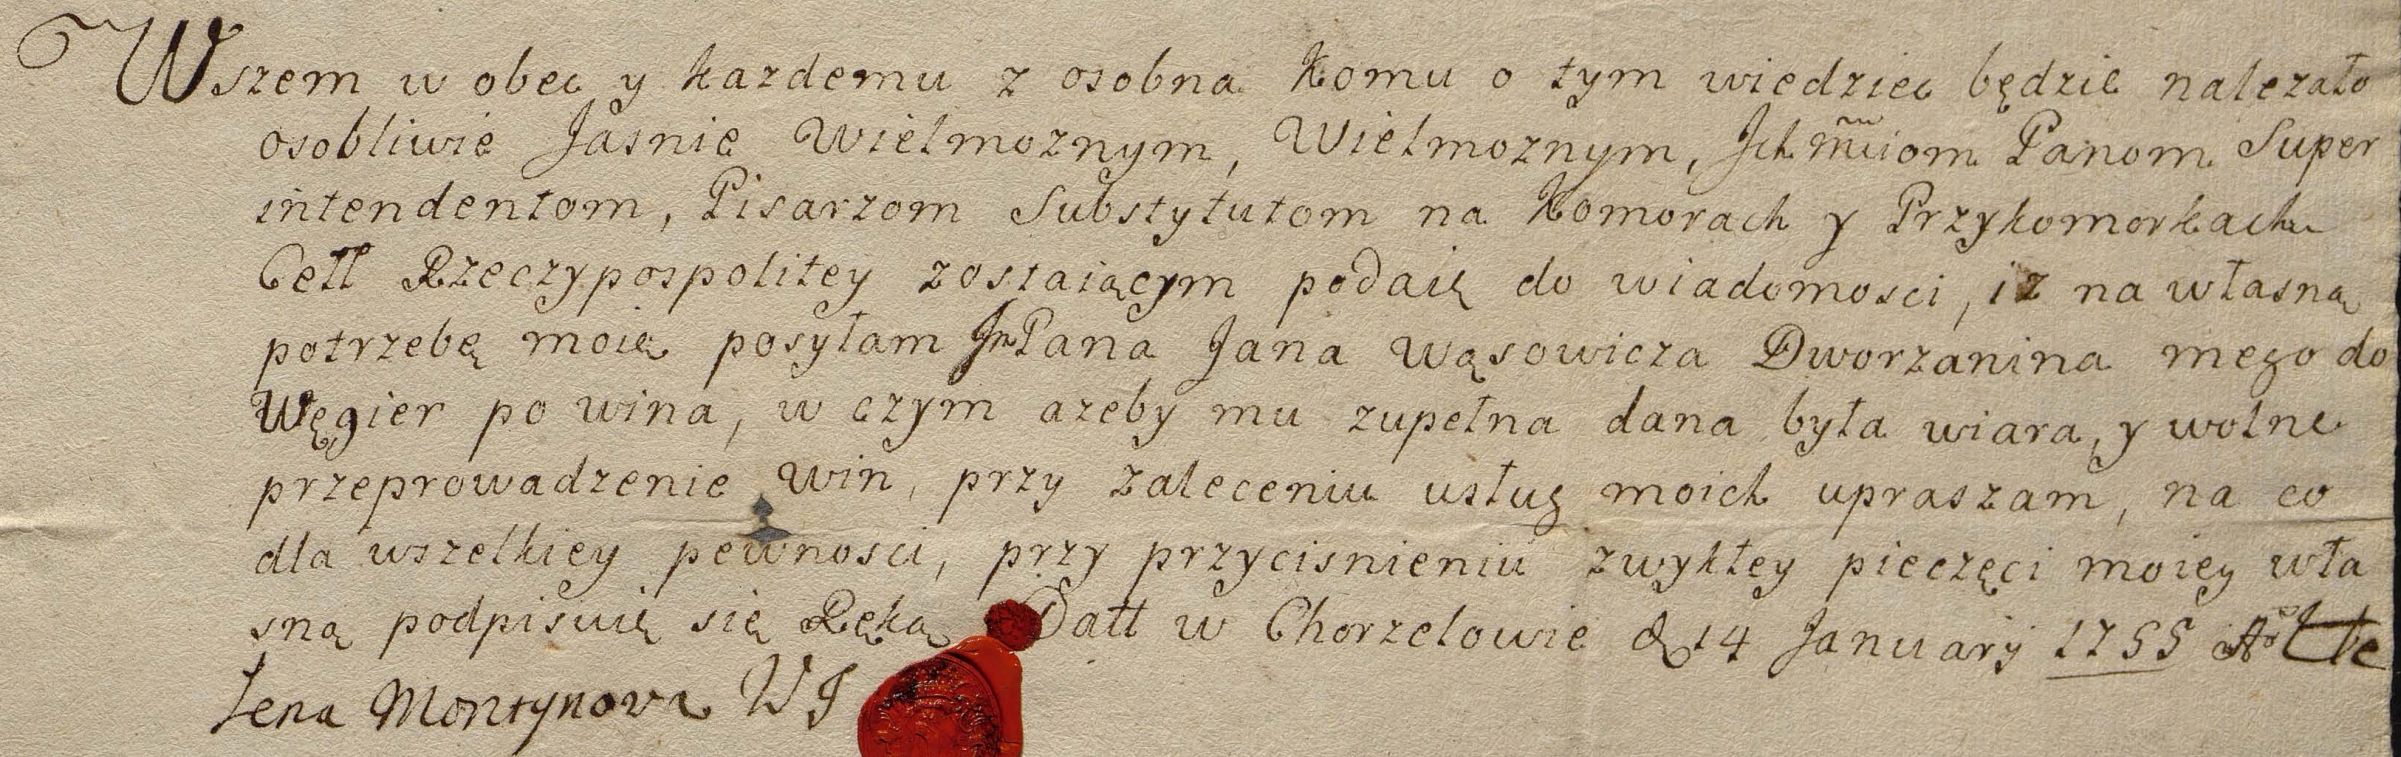 Wszem w obec y kazdemu z osobna komu o tym wiedziec będzie nalezało
osobliwie Jasnie Wielmoznym, Wielmoznym, Jchmciom Panom Super
intendentom, Pisarzom Substytutom na Komorach y Przykomorkach
Cell Rzeczypospolitey zostaiącym podaię do wiadomosci, iz na własną
potrzebę moię posyłam JmPana Jana Wąsowicza Dworzanina mego do
Węgier po wina, w czym azeby mu zupełna dana była wiara, y wolne
przeprowadzenie win, przy zaleceniu usług moich upraszam, na co
dla wszelkiey pewnosci, przy przycisnieniu zwykłey pieczęci moiey wła
sną podpisuię się Ręką Datt w Chorzelowie d 14 January 1755